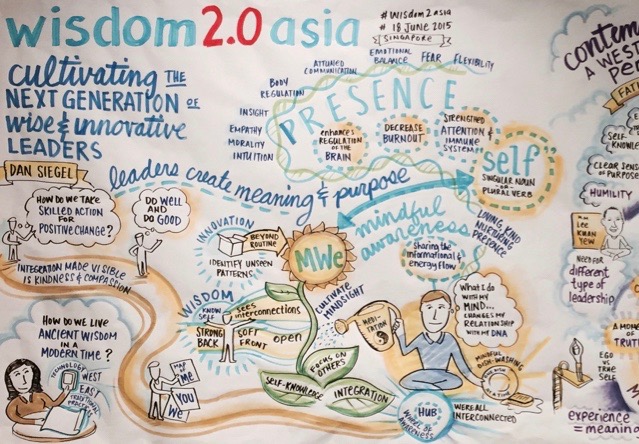 wisdom 2.0 asia
# Wisdom2asia
# 18 JUNE 2015
SINGAPORE
cultivating THE
NEXT GENERATION OF
wise & innovative
LEADERS
DAN SIEGEL
leaders create meaning & purpose
HOW DO WE TAKE
SKILLED ACTION
FOR
POSITIVE CHANGE?
DO WELL
AND
DO GOOD
INTEGRATION MADE VISIBLE
IS KINDNESS & COMPASION
HOW DO WE LIVE
ANCIENT WISDOM
IN A
MODERN TIME?
TECHNOLOGY
WEST
EAST
MAP OF
ME
YOU
WE
PRESENCE
INTUITION
MORALITY
EMPATHY
INSIGHT
BODY
REGULATION
ATTUNED
COMMUNICATION
EMOTIONAL
BALANCE
FEAR
FLEXIBILITY
ENHANCES
REGULATION
OF THE
BRAIN
DECREASE
BURNOUT
STRENGTHEN
ATTENTION &
IMMUNE
SYSTEM
"self"
SINGULAR NOUN
OR
PLURAL VERB
INNOVATION
BEYOND
ROUTINE
IDENTIFY UNSEEN
PATTERNS
MWe
WISDOM
KNOW
SELF
SEES
interconnections
STRONG
BACK
SOFT
FRONT
open
CULTIVATE
MINDSIGHT
FOCUS ON
OTHERS
SELF-KNOWLEDGE
INTEGRATION
mindful
awareness
LOVING, KIND
NURTURING
PRESENCE
Sharing the
informational &
energy flow
MEDI-
TATION
What I do
WITH MY
MIND...
CHANGES MY
RELATIONSHIP
WITH MY DNA
MINDFUL
DISH-WASHING
HUB
WHEEL OF
AWARENESS
WE'RE ALL
INTERCONNECTED
contem
A WES
Pe
FAT
SELF
KNOWLE
CLEAR SENSE
OF PURPOSE
HUMILITY
MR
LEE
KWAN
YEW
NEED FOR
different
type of
leadership
A MO
OF
TRUT
EGO
TRUE
SELF
experience
= meaning